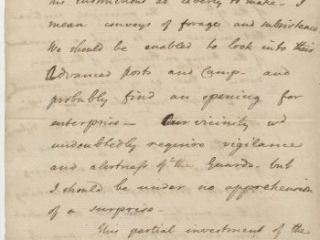 his incursions as cleverly to make - I
mean convoys of forage and subsistence
We should be enabled to look into their
Advanced Posts and Camp - and
probably find an opening for
enterprise - Our vicinity wd
undoubtedly require vigilance
and alertness of the Guards. but
I should be under no apprehension
of a surprise.
This partial investment of the